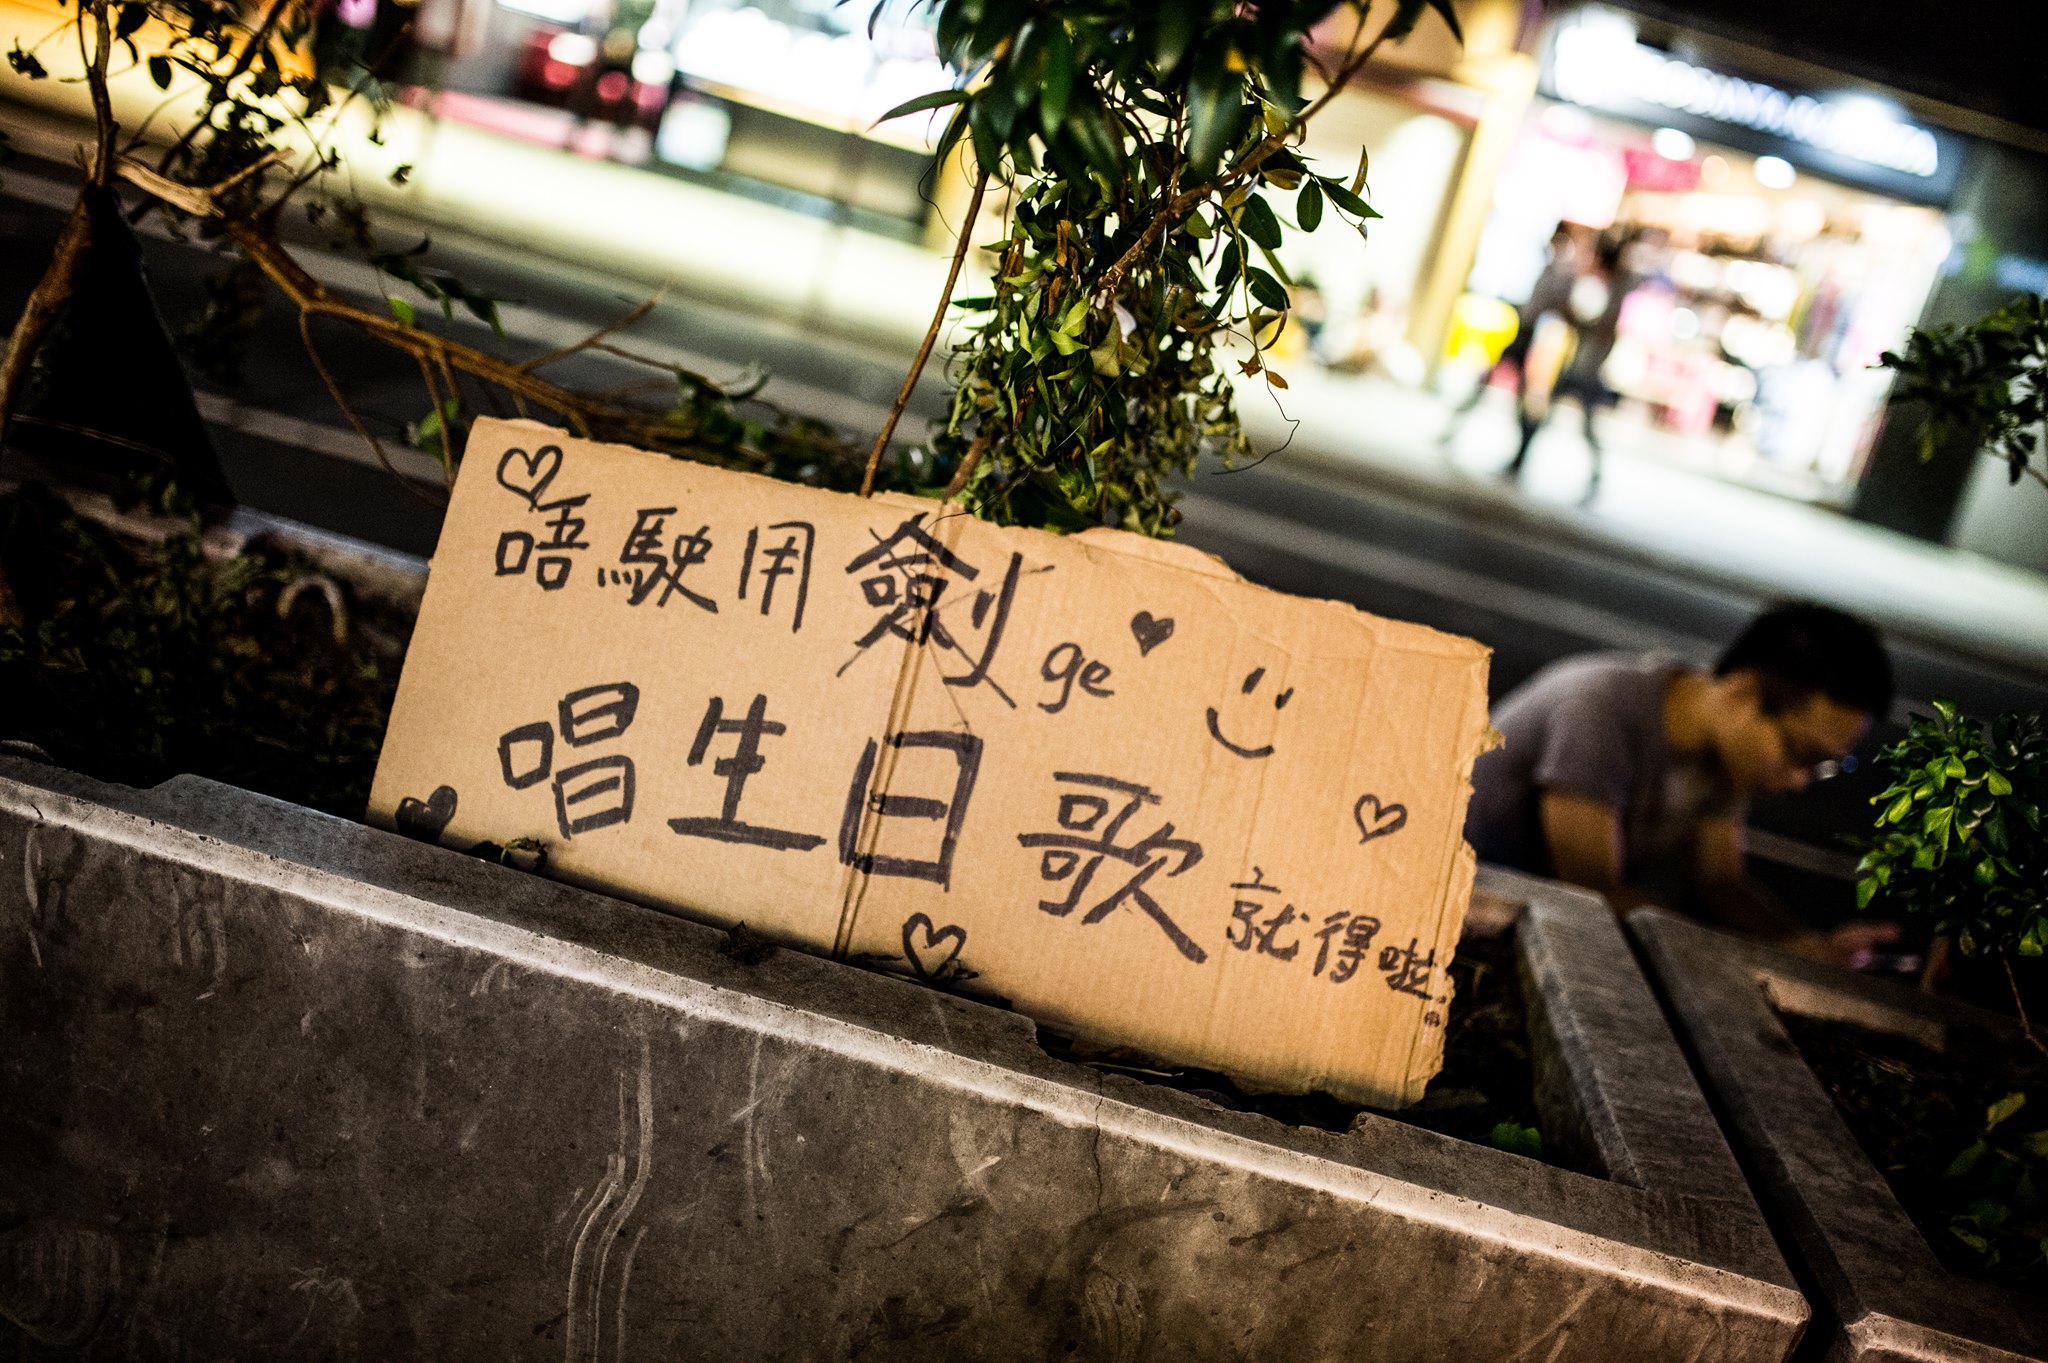 唔駛用劍ge
唱生日歌就得啦